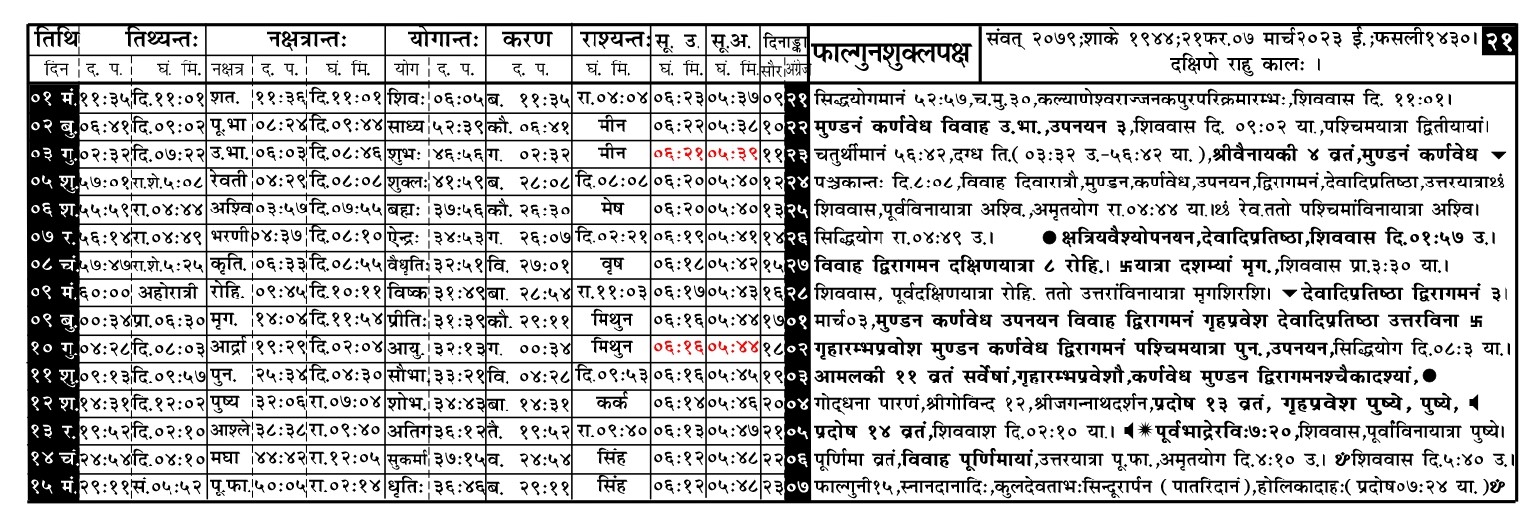 तिथि तिथ्यन्तः नक्षत्रान्तः योगान्तः करण राश्यन्तः सू. उ. सू.अ. दिनाङ्का फाल्गुनशुक्लपक्ष संवत् २०७९;शाके १९४४;२१फर.०७ मार्च२०२३ ई.;फसली१४३०। २१
दिन द. प. घं. मि. नक्षत्र द. प. घं. मि. योग द. प. द. प. घं. मि. घं. मि. घं. मि. सौर अंग्रेज दक्षिणे राहु कालः ।
०१ मं. ११:३५ दि.११:०१ शत. ११:३६ दि.११:०१ शिवः ०६:०५ ब. ११:३५ रा.०४:०४ ०६:२३ ०५:३७ ०९ २१ सिद्धयोगमानं ५२:५७,च.मु.३०,कल्याणेश्वराज्जनकपुरपरिक्रमारम्भः,शिववास दि. ११:०१।
०२ बु. ०६:४१ दि.०९:०२ पू.भा ०८:२४ दि.०९:४४ साध्य ५२:३९ कौ. ०६:४१ मीन ०६:२२ ०५:३८ १० २२ मुण्डनं कर्णवेध विवाह उ.भा.,उपनयन ३,शिववास दि. ०९:०२ या.,पश्चिमयात्रा द्वितीयायां।
०३ गु. ०२:३२ दि.०७:२२ उ.भा. ०६:०३ दि.०८:४६ शुभः ४६:५६ ग. ०२:३२ मीन ०६:२१ ०५:३९ ११ २३ चतुर्थीमानं ५६:४२,दग्ध ति.( ०३:३२ उ.-५६:४२ या. ),श्रीवैनायकी ४ व्रतं,मुण्डनं कर्णवेध
०५ शु. ५७:०१ रा.शे.५:०८ रेवती ०४:२९ दि.०८:०८ शुक्लः ४१:५९ ब. २८:०८ दि.०८:०८ ०६:२० ०५:४० १२ २४ पञ्चकान्तः दि.८:०८,विवाह दिवारात्रौ,मुण्डन,कर्णवेध,उपनयन,द्विरागमनं,देवादिप्रतिष्ठा,उत्तरयात्रा
०६ श. ५५:५९ रा.०४:४४ अश्वि ०३:५७ दि.०७:५५ बह्मः ३७:५६ कौ. २६:३० मेष ०६:२० ०५:४० १३ २५ शिववास,पूर्वविनायात्रा अश्वि.,अमृतयोग रा.०४:४४ या। रेव.ततो पश्चिमांविनायात्रा अश्वि।
०७ र. ५६:१४ रा.०४:४९ भरणी ०४:३७ दि.०८:१० ऐन्द्रः ३४:५३ ग. २६:०७ दि.०२:२१ ०६:१९ ०५:४१ १४ २६ सिद्धियोग रा.०४:४९ उ.। ● क्षत्रियवैश्योपनयन,देवादिप्रतिष्ठा,शिववास दि.०१:५७ उ.।
०८ चं. ५७:४७ रा.शे.५:२५ कृति. ०६:३३ दि.०८:५५ वैधृतिः ३२:५१ वि. २७:०१ वृष ०६:१८ ०५:४२ १५ २७ विवाह द्विरागमन दक्षिणयात्रा ८ रोहि.। 卐यात्रा दशम्यां मृग.,शिववास प्रा.३:३० या.।
०९ मं. ६०:०० अहोरात्री रोहि. ०९:४५ दि.१०:११ विष्क ३१:४९ बा. २८:५४ रा.११:०३ ०६:१७ ०५:४३ १६ २८ शिववास, पूर्वदक्षिणयात्रा रोहि. ततो उत्तरांविनायात्रा मृगशिरशि। देवादिप्रतिष्ठा द्विरागमनं ३।
०९ बु. ००:३४ प्रा.०६:३० मृग. १४:०४ दि.११:५४ प्रीतिः ३१:३९ कौ. २९:११ मिथुन ०६:१६ ०५:४४ १७ ०१ मार्च०३,मुण्डन कर्णवेध उपनयन विवाह द्विरागमनं गृहप्रवेश देवादिप्रतिष्ठा उत्तरविना 卐
१० गु. ०४:२८ दि.०८:०३ आर्द्रा १९:२९ दि.०२:०४ आयु. ३२:१३ ग. ००:३४ मिथुन ०६:१६ ०५:४४ १८ ०२ गृहारम्भप्रवोश मुण्डन कर्णवेध द्विरागमनं पश्चिमयात्रा पुन.,उपनयन,सिद्धियोग दि.०८:३ या.।
११ शु. ०९:१३ दि.०९:५७ पुन. २५:३४ दि.०४:३० सौभा ३३:२१ वि. ०४:२८ दि.०९:५३ ०६:१६ ०५:४५ १९ ०३ आमलकी ११ व्रतं सर्वेषां,गृहारम्भप्रवेशौ,कर्णवेध मुण्डन द्विरागमनश्चैकादश्यां,●
१२ श. १४:३१ दि.१२:०२ पुष्य ३२:०६ रा.०७:०४ शोभ. ३४:४३ बा. १४:३१ कर्क ०६:१४ ०५:४६ २० ०४ गोद्धना पारणं,श्रीगोविन्द १२,श्रीजगन्नाथदर्शन,प्रदोष १३ व्रतं, गृहप्रवेश पुष्ये, पुष्ये,
१३ र. १९:५२ दि.०२:१० आश्ले ३८:३८ रा.०९:४० अतिग ३६:१२ तै. १९:५२ रा.०९:४० ०६:१३ ०५:४७ २१ ०५ प्रदोष १४ व्रतं,शिववाश दि.०२:१० या.। पूर्वभाद्रेरविः७:२०,शिववास,पूर्वाविनायात्रा पुष्ये।
१४ चं. २४:५४ दि.०४:१० मघा ४४:४२ रा.१२:०५ सुकर्मा ३७:१५ व. २४:५४ सिंह ०६:१२ ०५:४८ २२ ०६ पूर्णिमा व्रतं,विवाह पूर्णिमायां,उत्तरयात्रा पू.फा.,अमृतयोग दि.४:१० उ.। शिववास दि.५:४० उ.।
१५ मं. २९:११ सं.०५:५२ पू.फा. ५०:०५ रा.०२:१४ धृतिः ३६:४६ ब. २९:११ सिंह ०६:१२ ०५:४८ २३ ०७ फाल्गुनी१५,स्नानदानादिः,कुलदेवताभःसिन्दूरार्पन ( पातरिदानं ),होलिकादाहः( प्रदोष०७:२४ या. )